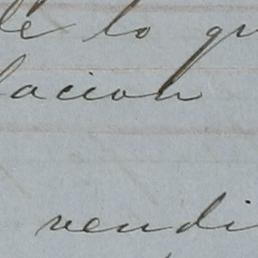 de lo qu
lacion
vendi